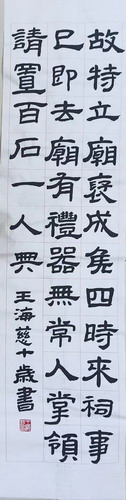 故特立廟褒成侯四時來祠事
已即去廟有禮器無常人掌領
請置百石一人典
王海慈十歲書